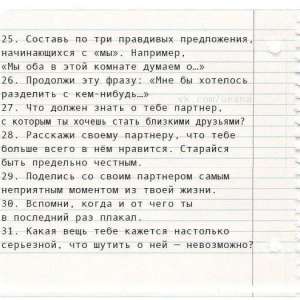 25. Составь по три правдивых предложения,
начинающихся с «мы». Например,
«Мы оба в этой комнате думаем о…»
26. Продолжи эту фразу: «Мне бы хотелось
разделить с кем-нибудь…»
27. Что должен знать о тебе партнер,
с которым ты хочешь стать близкими друзьями?
28. Расскажи своему партнеру, что тебе
больше всего в нём нравится. Старайся
быть предельно честным.
29. Поделись со своим партнером самым
неприятным моментом из твоей жизни.
30. Вспомни, когда и от чего ты
в последний раз плакал.
31. Какая вещь тебе кажется настолько
серьезной, что шутить о ней — невозможно?